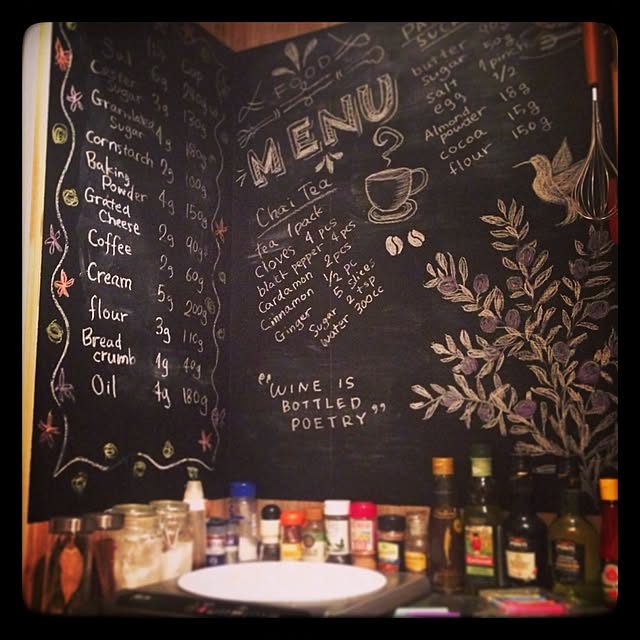 Salt 6g
Caster Sugar 3g
Granulated Sugar 4g 180g
cornstarch 2g 100g
Baking Powder 4g 150g
Grated Cheese 2g 90g
Coffee 2g 60g
Cream 5g 200g
flour 3g 110g
Bread crumb 1g 40g
Oil 4g 180g
FOOD
MENU
Chai Tea
Tea 1 pack
cloves 4 pcs
black pepper 4 pcs
Cardamon 2 pcs
Cinnamon 1/2 pc
Ginger 2 slices
Sugar tsp
water 300cc
"WINE IS
BOTTLED
POETRY"
butter 90g
sugar
salt 1 pinch
egg 1/2
Almond powder 18g
cocoa 15g
flour 150g